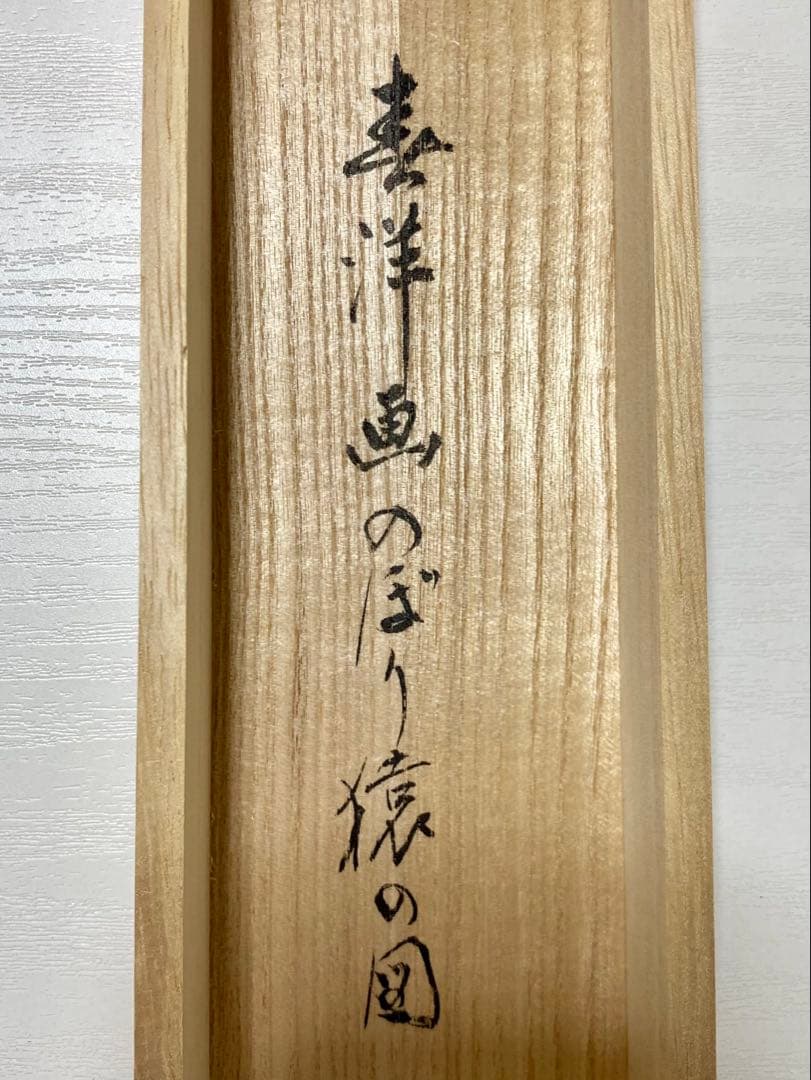 春洋画のぼり猿の図